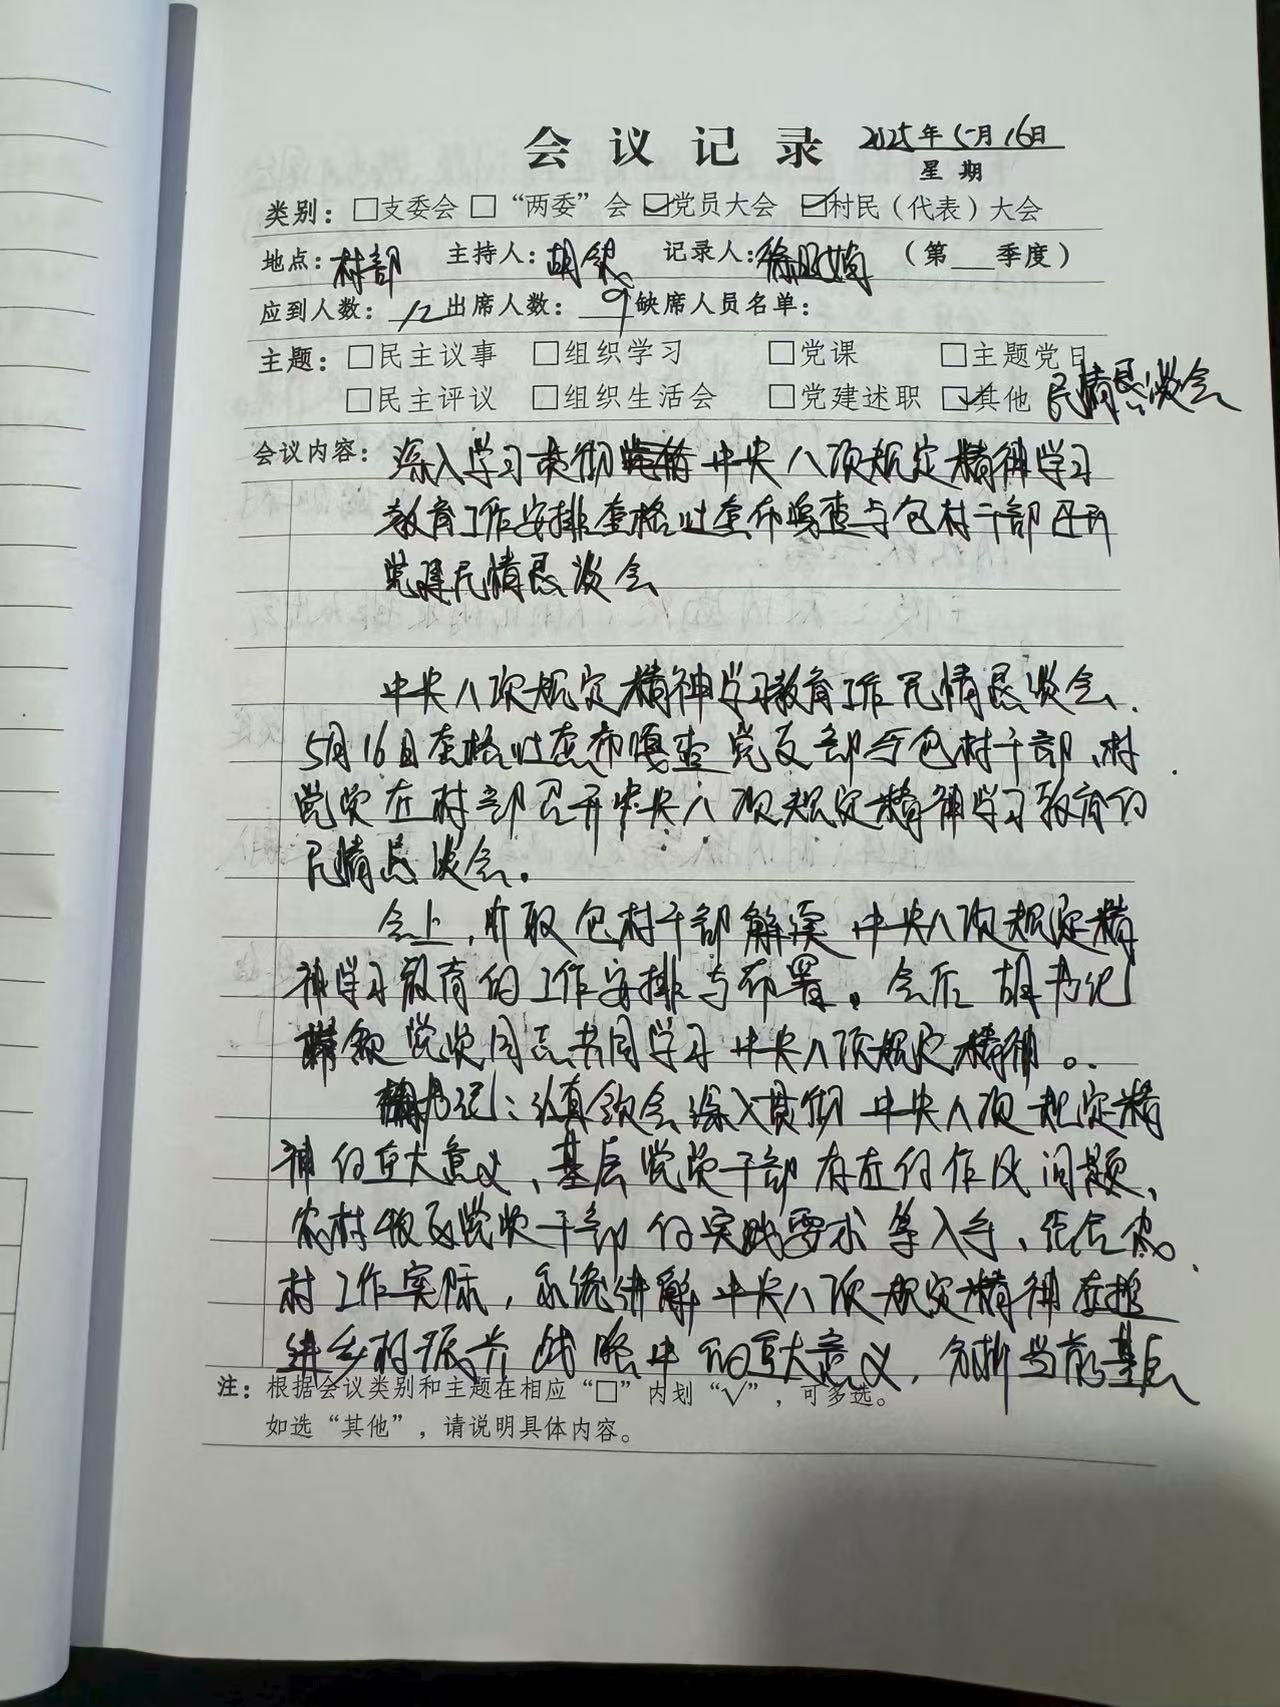 会议记录 2025年5月16日
星期
类别：□支委会 □“两委”会 ☑党员大会 ☑村民（代表）大会
地点：村部 主持人：胡 记录人：徐 （第__季度）
应到人数：12 出席人数：9 缺席人员名单：
主题：□民主议事 □组织学习 □党课 □主题党日
□民主评议 □组织生活会 □党建述职 ☑其他 民情恳谈会
会议内容：深入学习贯彻 中央八项规定精神学习
教育工作安排查格吐查布嘎查与包村干部召开
党建民情恳谈会
中央八项规定精神学习教育工作民情恳谈会、
5月16日查格吐查布嘎查党支部与包村干部、村
党员在村部召开中央八项规定精神学习教育的
民情恳谈会。
会上，听取包村干部解读中央八项规定精
神学习教育的工作安排与布署。会后胡书记
带领党员同志共同学习中央八项规定精神。
胡书记：认真领会深入贯彻中央八项规定精
神的重大意义、基层党员干部存在的作风问题、
农村牧区党员干部的实践要求等入手、结合农
村工作实际，系统讲解中央八项规定精神在推
进乡村振兴战略中的重大意义，分析当前基层
注：根据会议类别和主题在相应“□”内划“√”，可多选。
如选“其他”，请说明具体内容。